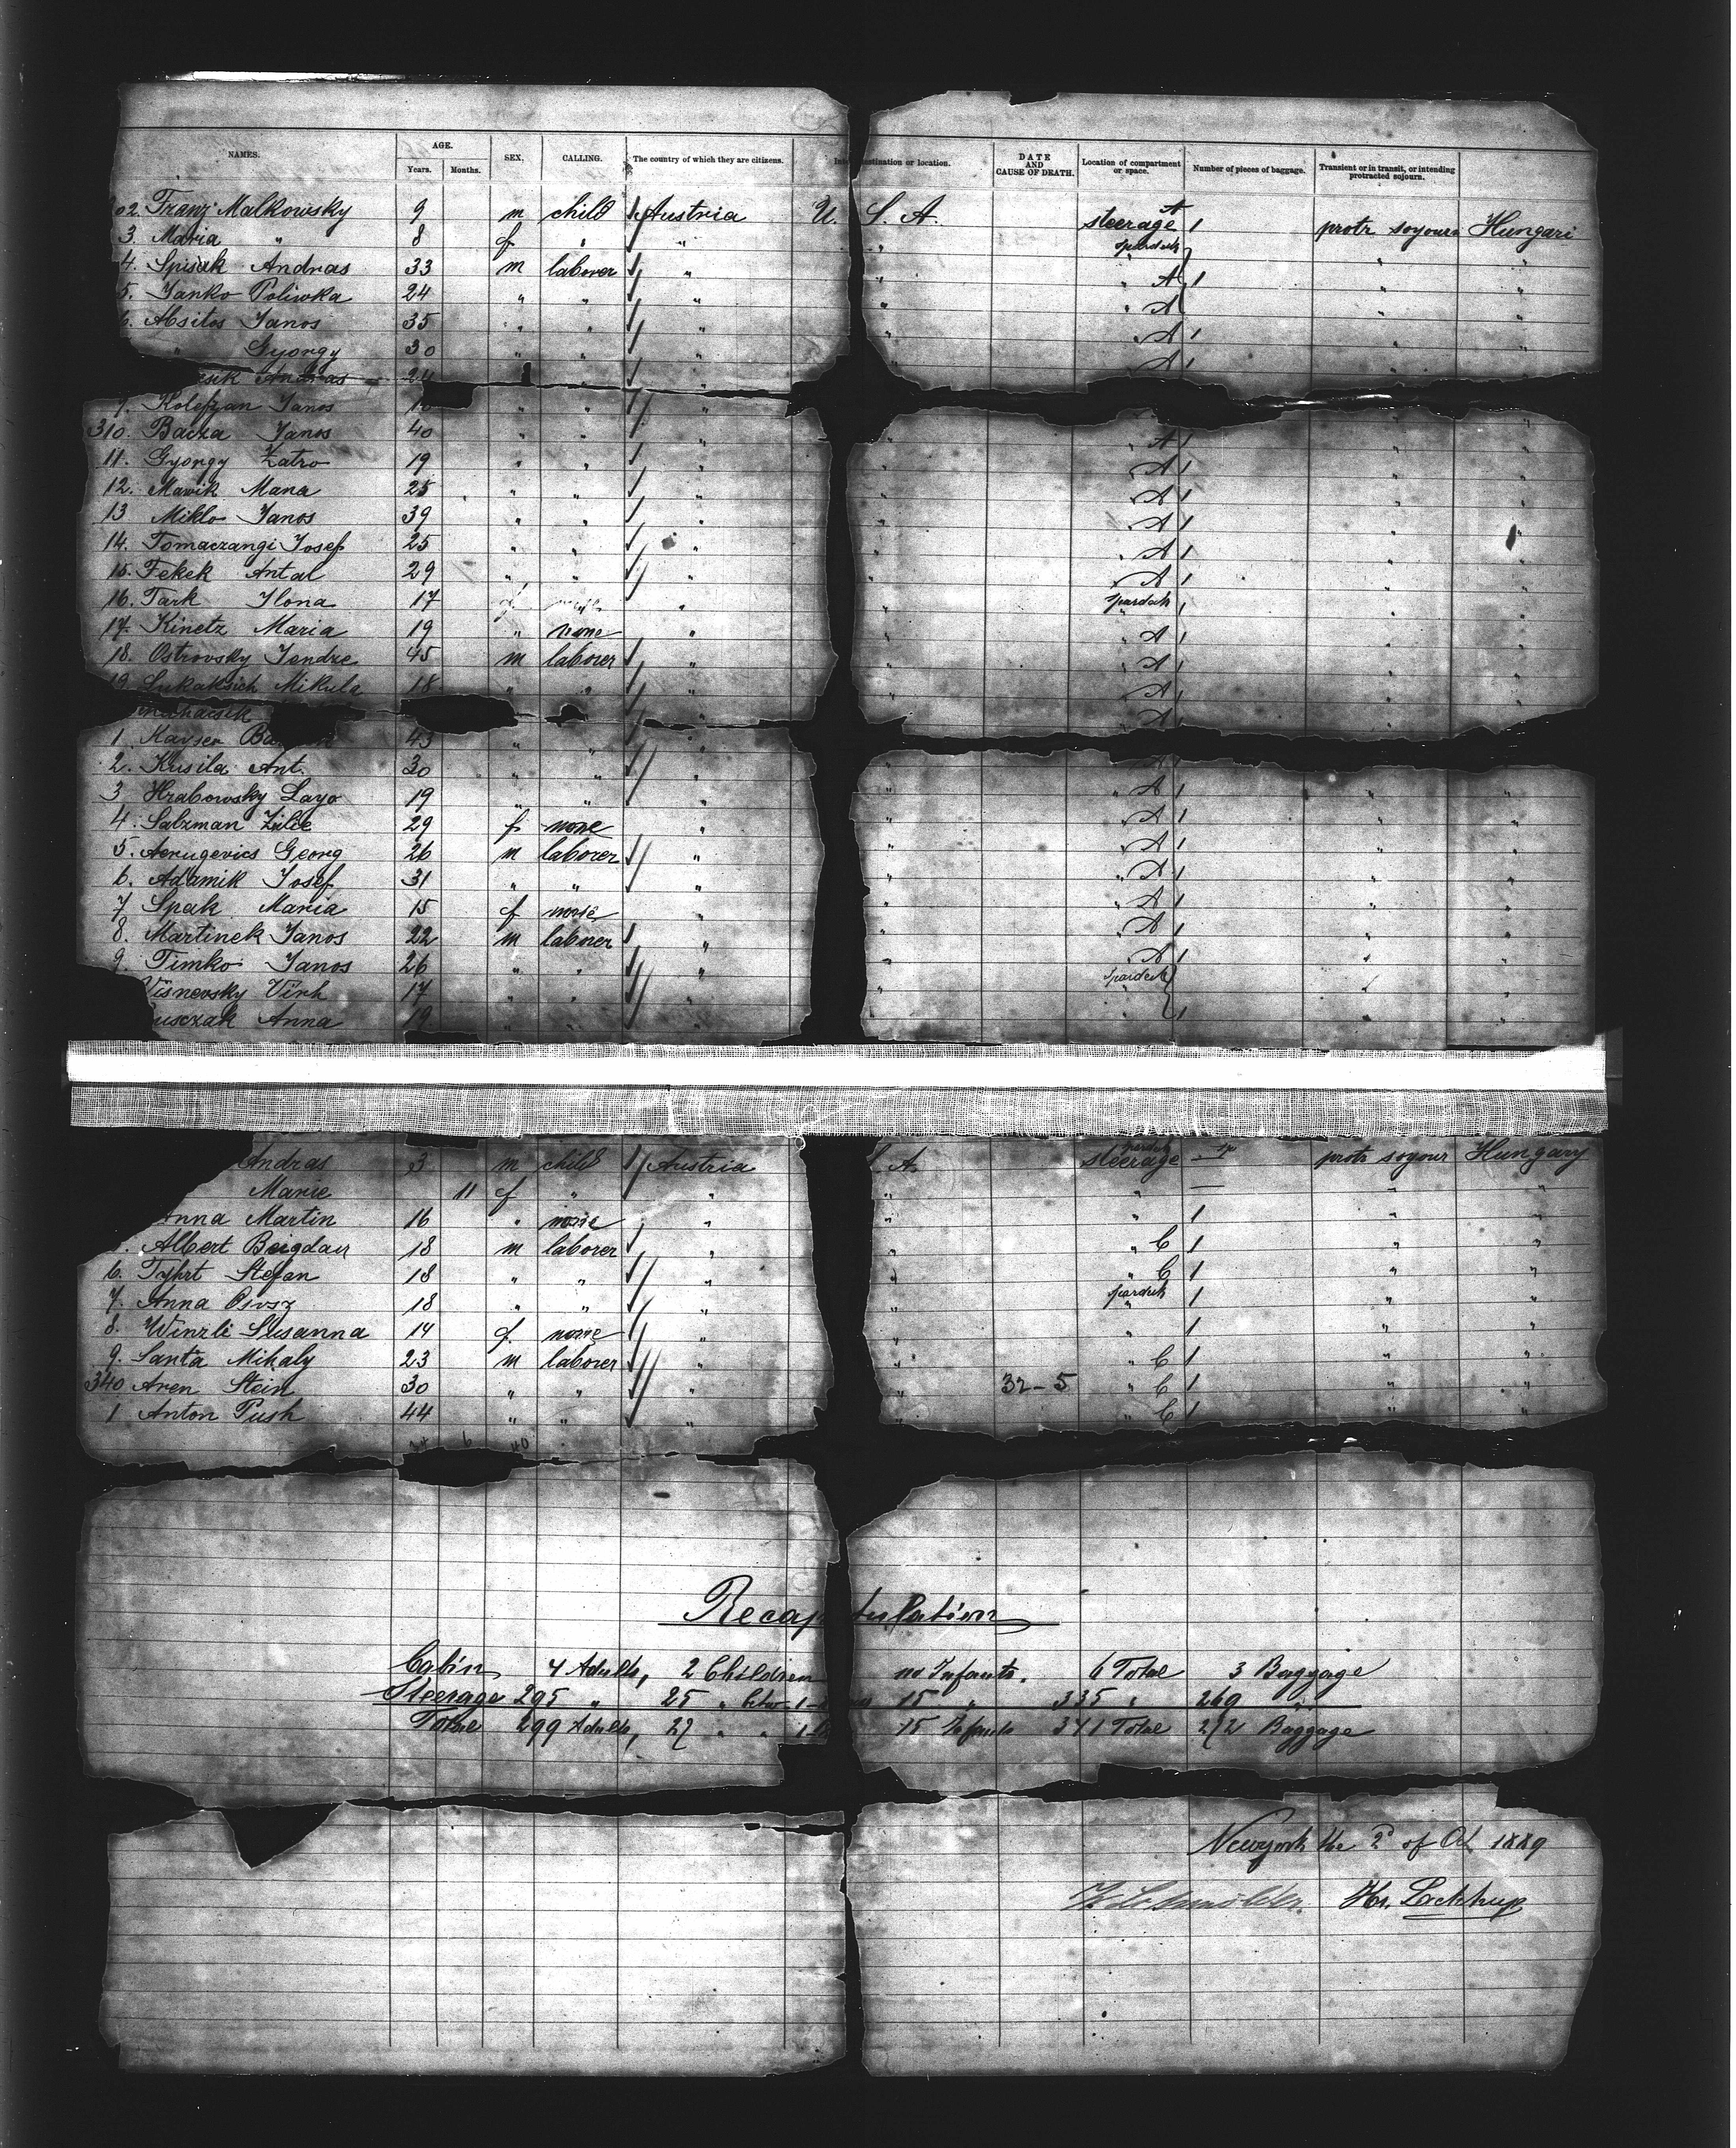 NAMES. AGE. Years. Months. SEX. CALLING. The country of which they are citizens. destination or location. DATE AND CAUSE OF DEATH. Location of compartment or space. Number of pieces of baggage. Transient or in transit, or intending protracted sojourn.
02. Franz Malkowsky 9 m child Austria U. S. A. steerage A 1 protr soyour Hungari
3. Maria " 8 f " " " spardeck " "
4. Spisak Andras 33 m laborer " " " A 1 " "
5. Janko Poliwka 24 " " " " " A " "
6. Absitos Janos 35 " " " " " A 1 " "
" Gyorgy 30 " " " " " A 1 " "
Andras 24 " " "
9. Janos " " "
310. Bacza Janos 40 " " " " " A 1 " "
11. Gyorgy Zatro 19 " " " " " A 1 " "
12. Mavik Mana 25 " " " " " A 1 " "
13 Miklo Janos 39 " " " " " A 1 " "
14. Tomaczangi Josef 25 " " " " " A 1 " "
15. Fekek Antal 29 " " " " " A 1 " "
16. Tark Ilona 17 f " " spardeck 1 " "
17. Kinetz Maria 19 " none " " " A 1 " "
18. Ostrovsky Jendre 45 m laborer " " " A 1 " "
19. Lukaksich Mikula 18 " " " " " A 1 " "
" A 1 " "
1. Kayser 43 " " " " "
2. Kusila Ant. 30 " " " " " A 1 " "
3 Hrabowsky Layo 19 " " " " " A 1 " "
4. Salzman Zilie 29 f none " " " A 1 " "
5. Georg 26 m laborer " " " A 1 " "
6. Adamik Josef 31 " " " " " A 1 " "
7 Spak Maria 15 f none " " " A 1 " "
8. Martinek Janos 22 m laborer " " " A 1 " "
9. Timko Janos 26 " " " " " A " "
Visnevsky 17 " " " " spardeck " "
Anna 19 " " " 1 " "
Andras 3 m child Austria A. spardeck steerage protr soyour Hungary
Marie 11 f " " " " — " "
Anna Martin 16 " none " " " 1 " "
Albert Beigdau 18 m laborer " " " C 1 " "
6. Stefan 18 " " " " " C 1 " "
7. Anna 18 " " " " spardeck " 1 " "
8. Winzli Susanna 14 f. none " " " 1 " "
9. Santa Mihaly 23 m laborer " " " C 1 " "
340 Aren Stein 30 " " " " 32-5 " C 1 " "
1 Anton Push 44 " " " " " C 1 " "
Recapitulation
Cabin 4 Adults, 2 Children no Infants. 6 Total 3 Baggage
Steerage 295 " 25 " betw. 1- 15 " 335 " 269 "
Total 299 Adults, 27 " " 1- 15 Infants 341 Total 272 Baggage
Newyork the 2d of Oct 1889